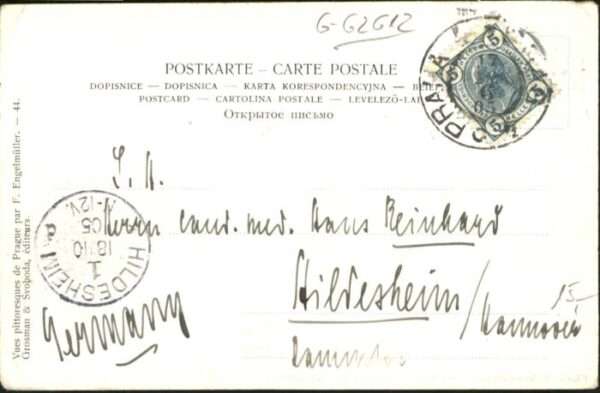 G-G2G12
POSTKARTE – CARTE POSTALE
DOPISNICE — DOPISNICA — KARTA KORESPONDENCYJNA —
POSTCARD — CARTOLINA POSTALE —
Открытое письмо
PRAHA
5
5
5
5
Herrn cand. med. Hans Reinhard
Hildesheim / Hannover
15-
Germany
HILDESHEIM
1
18.10
05
11-12V.
Vues pittoresques de Prague par F. Engelmüller. — 44.
Grosman & Svoboda, éditeurs.